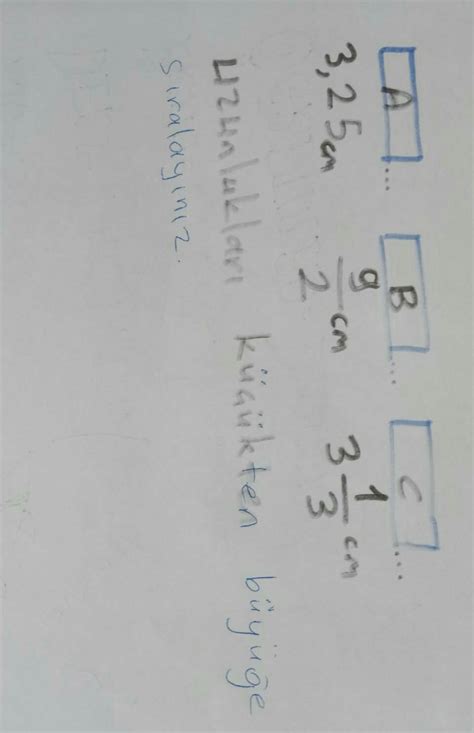 A ... B ... C ...
3,25cm 9/2 cm 3 1/3 cm
Uzunlukları küçükten büyüğe
sıralayınız.